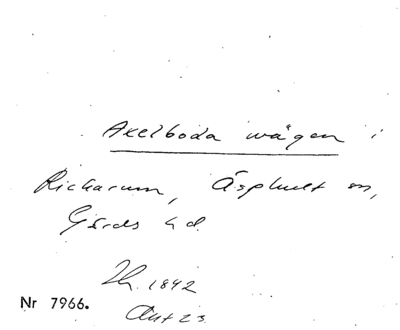 Axelboda vägen i
Rickarum, Äsphult sn,
Gärds hd.
1842
Nr 7966.